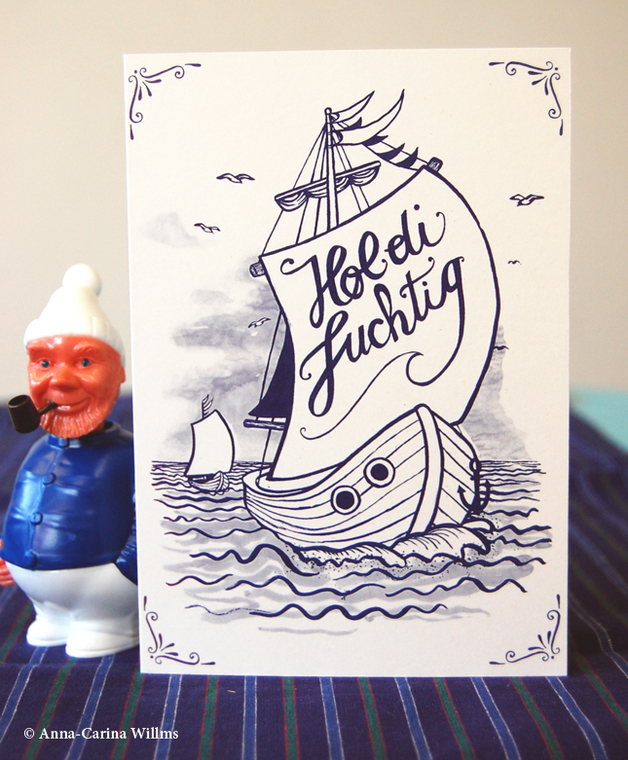 Hol di
Fuchtig
© Anna-Carina Willms